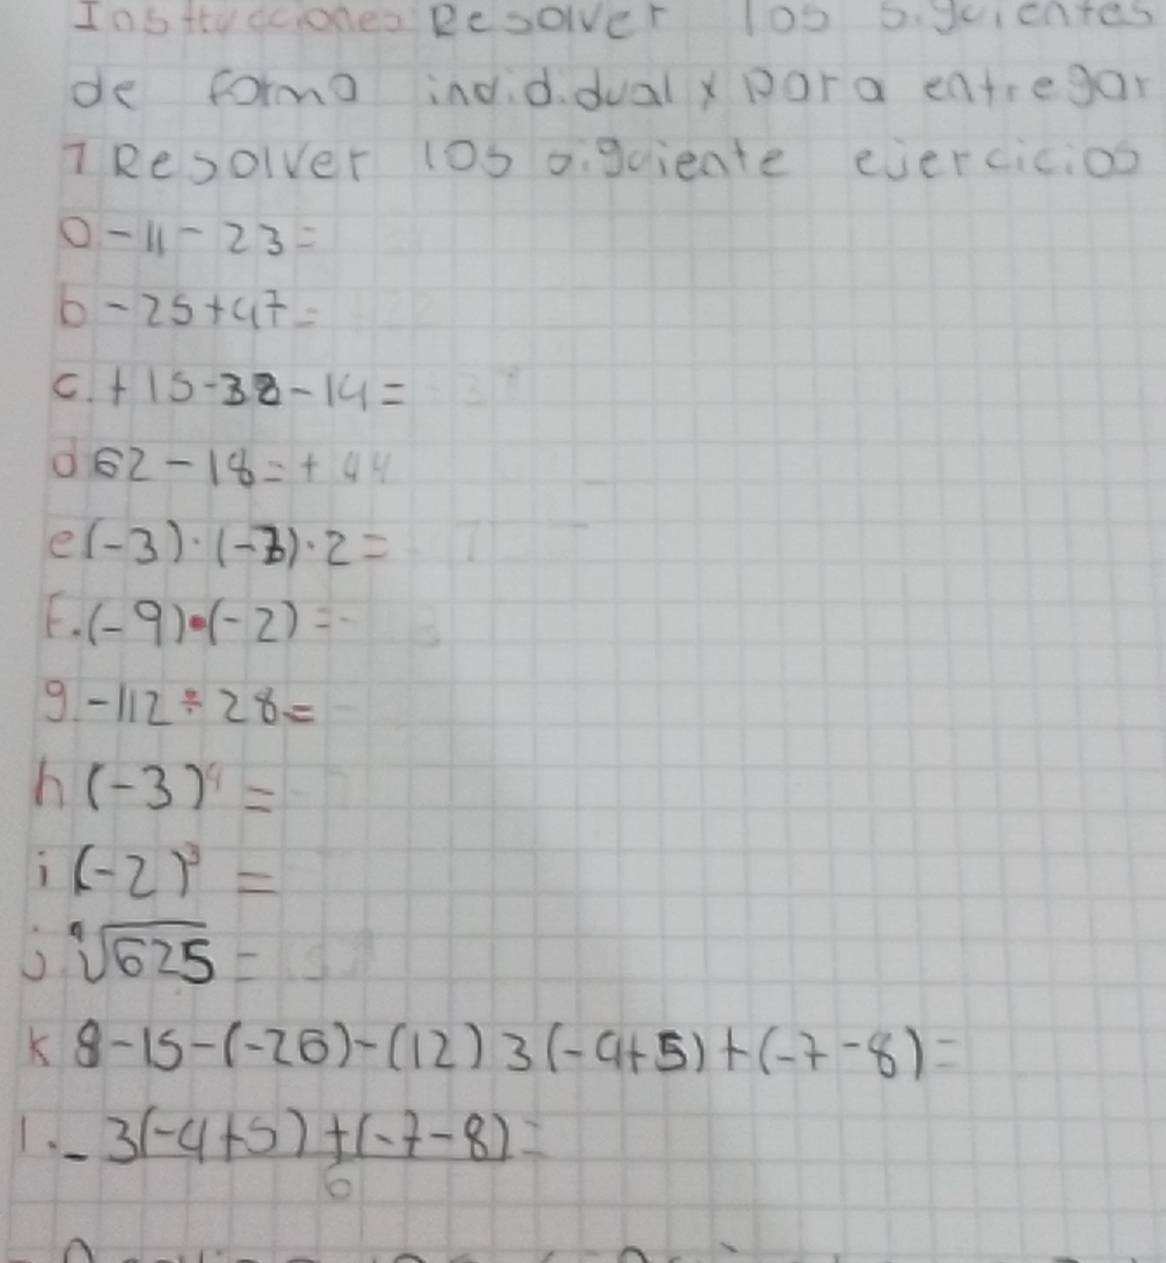 Instrucciones Resolver los siguientes
de forma individual y para entregar
1 Resolver los siguiente ejercicios
a -11-23=
b -25+47=
c. +15-38-14=
d 62-18=+44
e (-3)·(-7)·2=
F. (-9)•(-2)=-
g. -112÷28=
h (-3)⁴=
i (-2)³=
j ⁴√625=
k 8-15-(-26)-(12) 3(-4+5)+(-7-8)=
l. -3(-4+5)+(-7-8)=
6